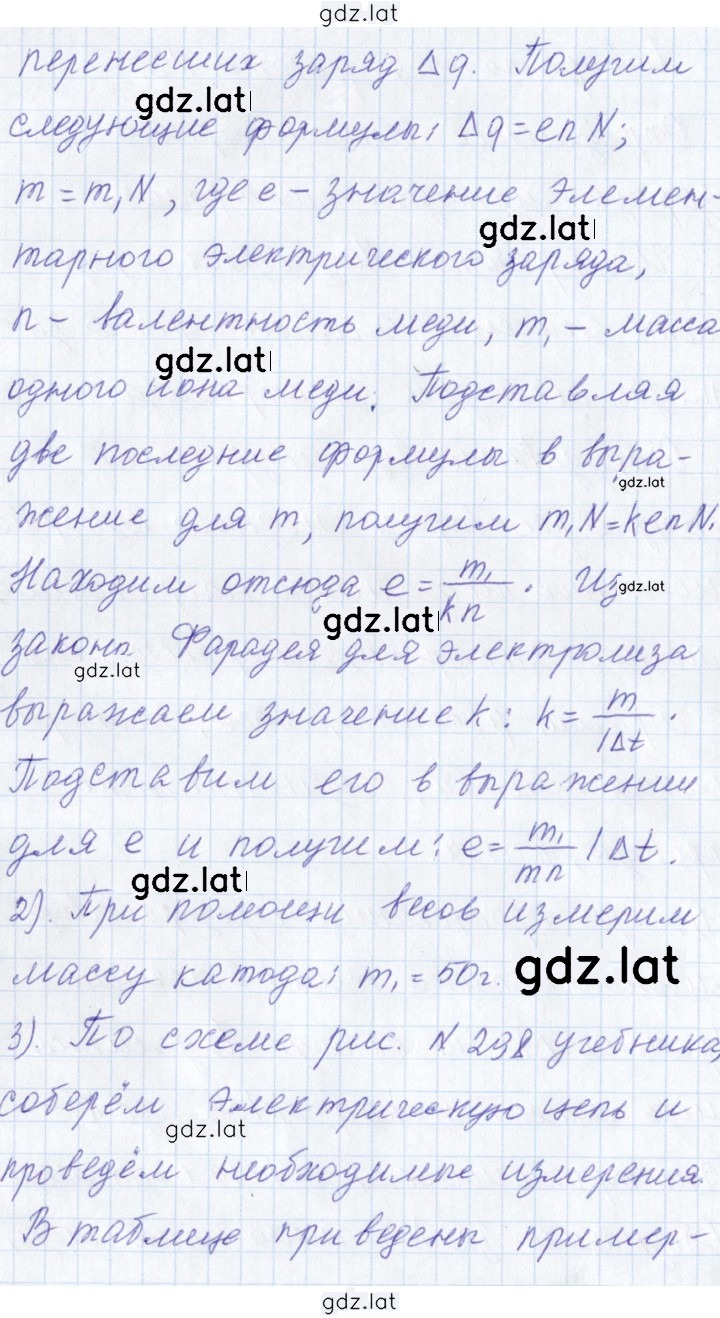 gdz.lat
перенесших заряд Δq. Получим
gdz.lat
следующие формулы: Δq=enN;
m=m₁N, где e – значение элемен-
gdz.lat
тарного электрического заряда,
n – валентность меди, m₁ – масса
gdz.lat
одного иона меди. Подставляя
две последние формулы в выра-
gdz.lat
жение для m, получим m₁N=kenN.
Находим отсюда e = m₁/kn. Из
gdz.lat
gdz.lat
закона Фарадея для электролиза
gdz.lat
выражаем значение k: k = m/IΔt.
Подставим его в выражении
для e и получим: e = m₁/mn IΔt.
gdz.lat
2). При помощи весов измерим
массу катода: m₁ = 50г.
gdz.lat
3). По схеме рис. N 298 учебника,
соберём электрическую цепь и
gdz.lat
проведём необходимые измерения.
В таблице приведены пример-
gdz.lat